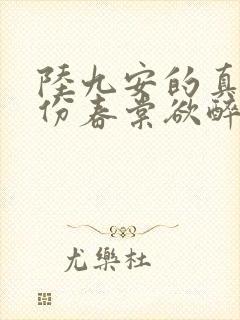 陸九安的真
份春棠欲醉
尤樂杜